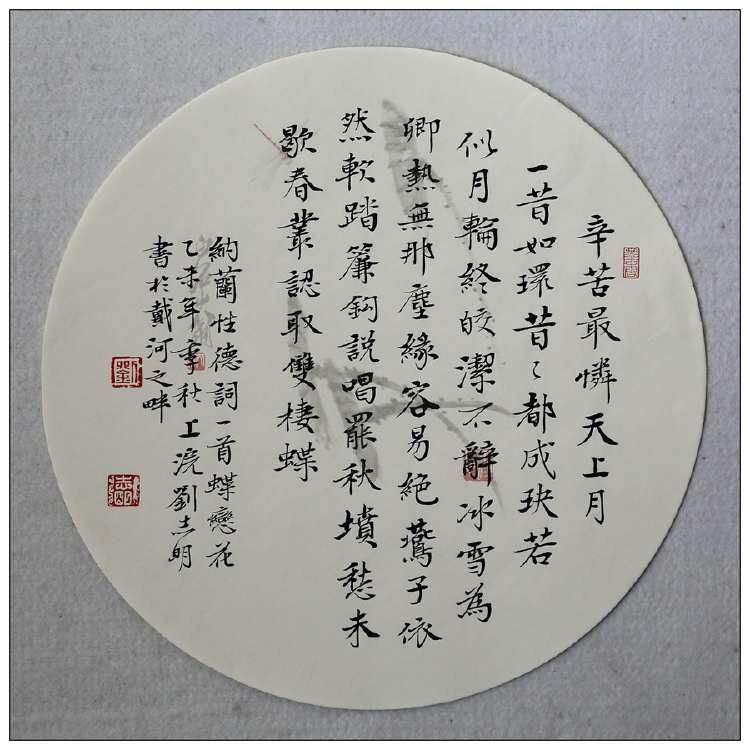 辛苦最憐天上月
一昔如環昔〻都成玦若
似月輪終皎潔不辭冰雪為
卿熱無那塵緣容易絕鷰子依
然軟踏簾鈎説唱罷秋墳愁未
歇春叢認取雙棲蝶
納蘭性德詞一首蝶戀花
乙未年季秋上浣劉志明
書於戴河之畔